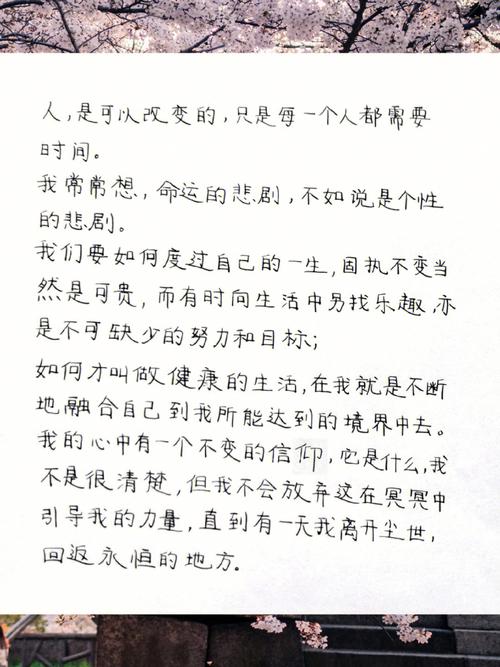 人,是可以改变的,只是每一个人都需要
时间。
我常常想,命运的悲剧,不如说是个性
的悲剧。
我们要如何度过自己的一生,固执不变当
然是可贵,而有时向生活中另找乐趣,亦
是不可缺少的努力和目标;
如何才叫做健康的生活,在我就是不断
地融合自己到我所能达到的境界中去。
我的心中有一个不变的信仰,它是什么,我
不是很清楚,但我不会放弃这在冥冥中
引导我的力量,直到有一天我离开尘世,
回返永恒的地方。